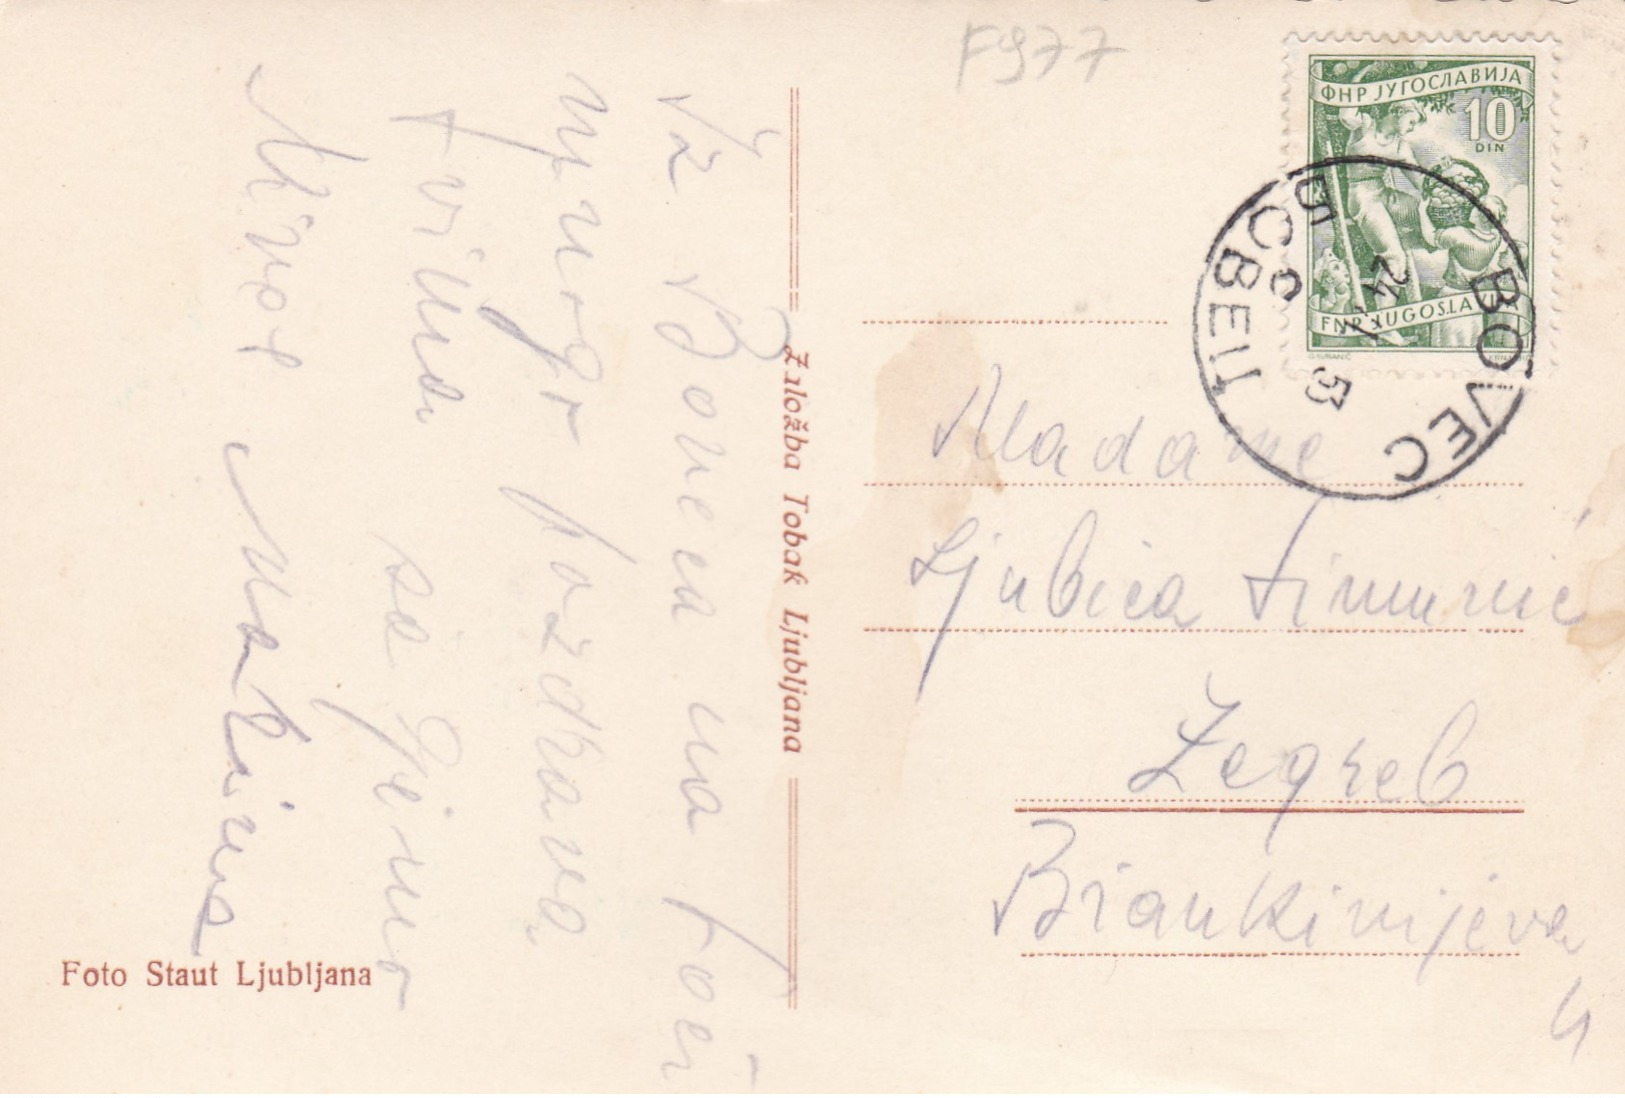 F977
ФНР ЈУГОСЛАВИЈА
10
DIN
FNR JUGOSLAVIJA
BOVEC
Iz Bovca na Soči
mnogo pozdrava
svima sa
Založba Tobak Ljubljana
Madame
Ljubica Simunić
Zagreb
Biankinijeva
4
Foto Staut Ljubljana